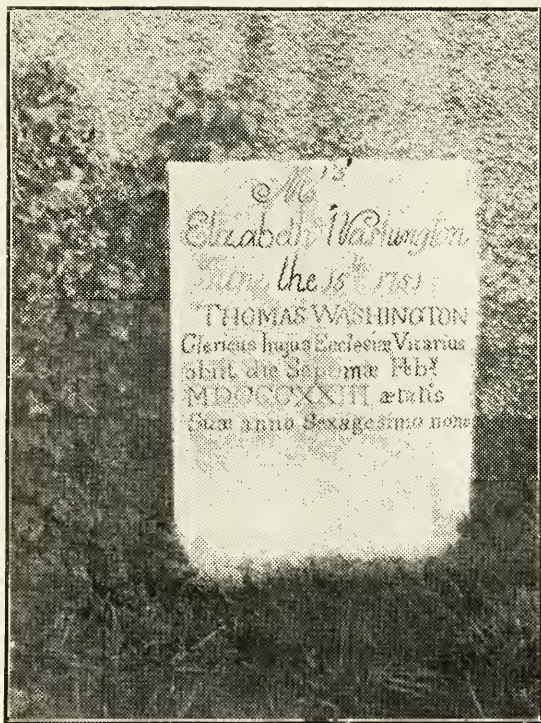 Mrs
Elizabeth Washington
June the 15th 1751
THOMAS WASHINGTON
Clericus hujus Ecclesiæ Vicarius
obiit die Septimæ Febr
MDCCCXXIII ætatis
Suæ anno Sexagesimo nono